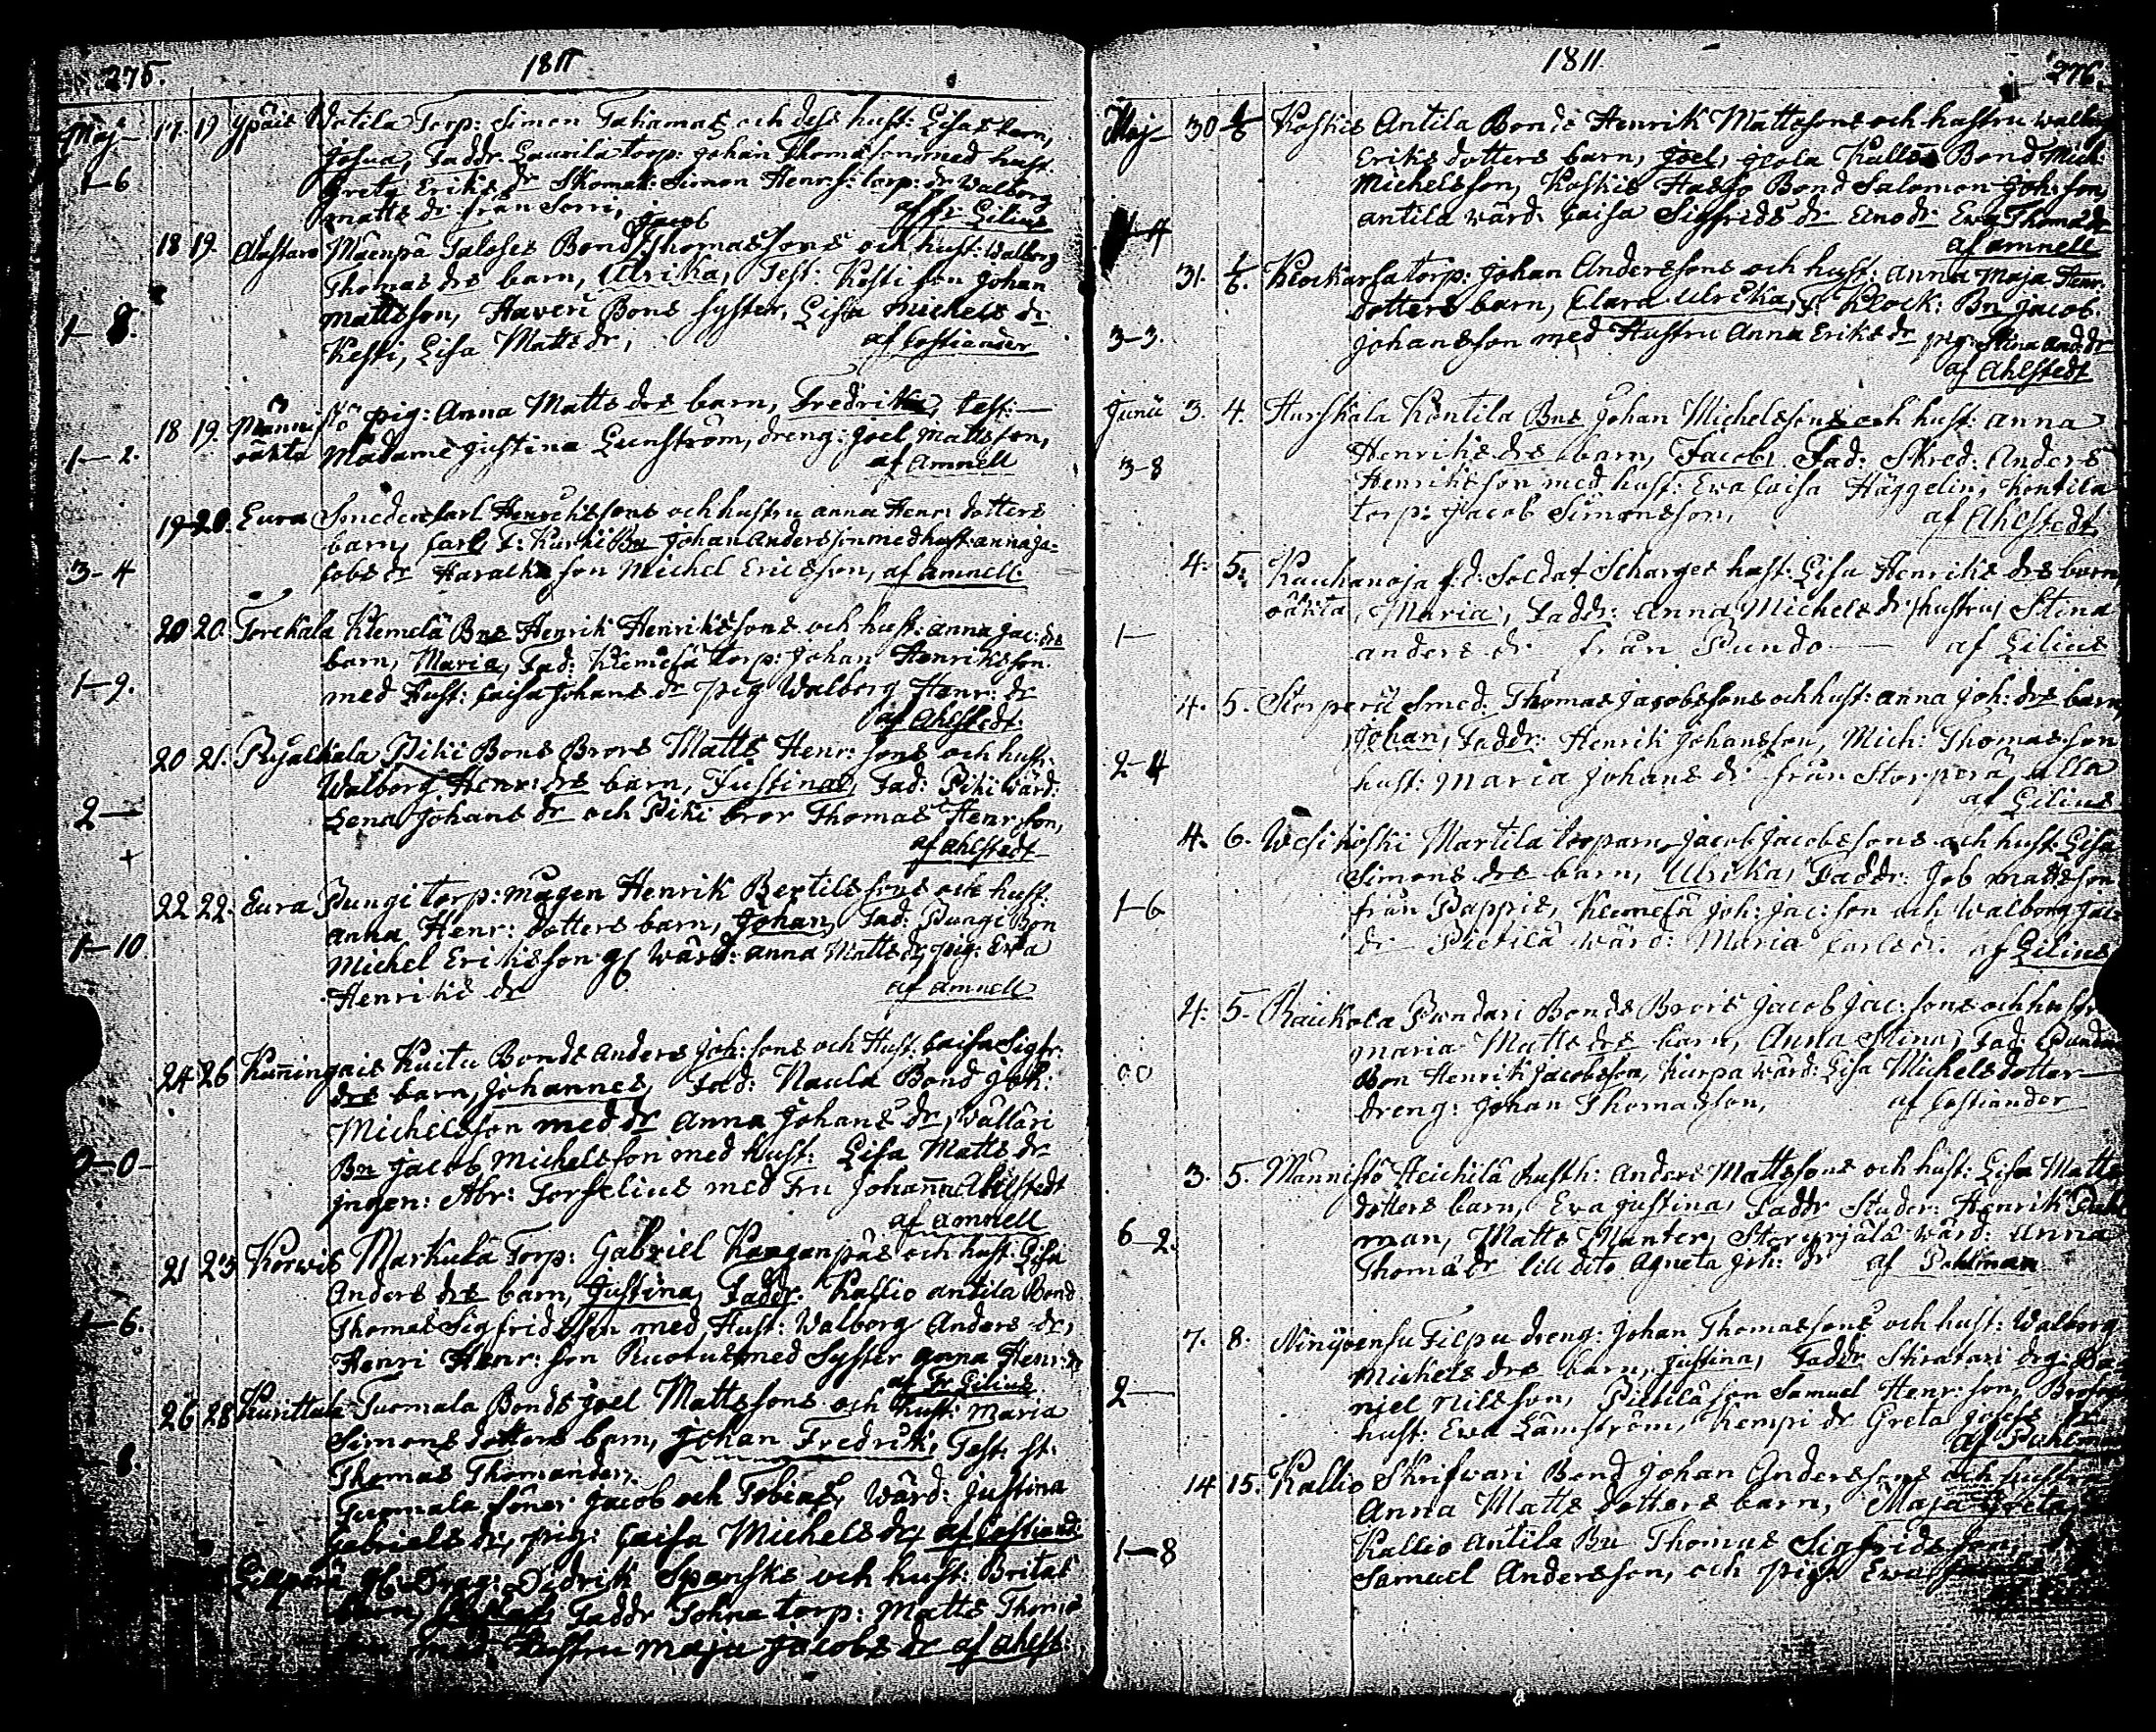 275. 1811
Maj 17. 19 Ypäis Totila Torp: Simon Takamas och dess hust: Lisas barn,
Josua, Faddr. Laurila torp: Johan Thomasson med hust.
1–6 Greta Eriks dr Skomak: Simon Henr: s: torp: dr Walborg
Matts dr från Sorri, af Fr Gilius
Jacob
18 19. Alastaro Mäenpä Taloses Bond Thomassons och hust: Walborg
Thomas drs barn, Ulrika, Test: Kesti son Johan
1–8. Mattsson, Haveri Bons syster, Lisa Michels dr
Kesti, Lisa Matts dr, af Costiander
18 19. Mannistö pig: Anna Matts drs barn, Fredrika, test:
1–2. oäkta Madame Justina Lunström, dreng: Joel Mattsson,
af Amnell
19 20. Eura Smeden Carl Henrikssons och hustru Anna Henr: dotters
barn, Carl, F: Kurki Bn Johan Andersson med hust: Anna Ja=
3–4 cobs dr son Michel Ericsson, af Amnell.
20 20. Torckala Klemelä Bns Henrik Henrikssons och hust: Anna Jac: drs
barn, Maria, Fad: Klemelä torp: Johan Henriksson
1–9. med Hust: Caisa Johans dr pig Walborg Henr: dr
af Ahlstedt.
20 21. Ryälkala Piki Bons Brors Matts Henr: sons och hust.
Walborg Henr: drs barn, Justina, Fad: Piki wärd:
2– Lena Johans dr och Piki bror Thomas Henr: son,
+ af Ahlstedt
22 22. Eura Pungi torp: mågen Henrik Bertilssons och hust:
Anna Henr: dotters barn, Johan, Fad: Pungi Bon
1–10. Michel Eriksson gl wärd: Anna Matts dr, pig: Ewa
Henriks dr af Amnell
24 26 Kanningais Kuitu Bonds Anders Joh: sons och Hust: Caisa Sigfr:
drs barn, Johannes, Fad: Naula Bond Joh:
Michelsson med dr Anna Johans dr, Wälläri
–0– Bn Jacob Michelsson med hust: Lisa Matts dr
Ingen: Abr: Torselius med Fru Johanna Ahlstedt
af Amnell
21 23 Korwis Markula Torp: Gabriel Kanganpäs och hust: Lisa
Anders drs barn, Justina, Faddr. Kallio Antila Bond
1–6. Thomas Sigfridsson med Hust: Walborg Anders dr,
Henri Henr: son Ruotus med Syster Anna Henr: dr
af Fr Gilius
26 28 Kurittula Tuomala Bonds Joel Mattssons och hust: Maria
Simons dotters barn, Johan Fredrik, Test: st:
8. Thomas Thomander,
Tuomala söner Jacob och Tobias, Wärd: Justina
Gabriels dr, pig: Caisa Michels dr, af Costiand:
Drag: Didrik Spansks och hust: Britas
barn, Faddr Johna torp: Matts Thomas
son med Hustru Maja Jacobs dr af Ahlst:
1811 276.
Maj 30 Koskis Antila Bonds Henrik Mattssons och hustru Walborg
Eriks dotters barn, Joel, Jeola Kallo Bond Mich:
Michelsson, Koskis Hasso Bond Salomon Joh: son,
Antila wärd: Caisa Sigfrids dr Eno dr Ewa Thomæ dr
af Amnell
31. Klockarla torp: Johan Anderssons och hust: Anna Maja Henr.
dotters barn, Clara Ulrika, F: Klock: Bn Jacob
3–3. Johansson med Hustru Anna Eriks dr pig: Stina And: dr
af Ahlstedt
Junii 3. 4. Hurskala Köntila Bns Johan Michelssons och hust: Anna
3–8 Henriks drs barn, Jacob, Fad: Skred: Anders
Henriksson med hust: Ewa Caisa Häggelin, Kontila
torp: Jacob Simonsson, af Ahlstedt
4. 5. Kauhanoja f.d: Soldat Scharges hust: Lisa Henriks drs barn
oäkta, Maria, Faddr: Anna Michels dr, hustru Stina
1– Anders dr från Pundo af Gilius
4. 5. Storperä Smed: Thomas Jacobssons och hust: Anna Joh: drs barn,
Johan, Faddr: Henrik Johansson, Mich: Thomasson
2–4 hust: Maria Johans dr från Storperä, alla
af Gilius
4. 6. Wesikoski Martila torparn Jacob Jacobssons och hust: Lisa
Simons drs barn, Ulrika, Faddr. Job Mattsson
1–6 från Pappis, Klemelä Joh: Jac: son och Walborg Jac:
dr Pietilä wärd: Maria Carls dr. af Gilius
4. 5. Raukola Pundari Bonds Brors Jacob Jac: sons och hustr
Maria Matts drs barn, Anna Stina, Fad: Pundar
00 Bon Henrik Jacobsson, Kurpa wärd: Lisa Michelsdotter
dreng: Johan Thomasson, af Costiander
3. 5. Mannistö Heickilä Rusth: Anders Mattssons och hust: Lisa Matts
dotters barn, Ewa Justina, Faddr Studer: Henrik Pahl
6–2. man, Matts Munter, Storyrjälä wärd: Anna
Thomæ dr lill dito Agneta Joh: dr af Pahlman
7. 8. Ninijoensu Filpu dreng: Johan Thomassons och hust: Walborg
Michels drs barn, Justina, Faddr Skratari drg: Da=
2– niel Nilsson, Pietilä son Samuel Henr: son,
hust: Ewa Lämström, Kempi dr Greta Josephs dr
af Pahlman
14 15. Kallio Skrifwari Bond Johan Anderssons och hustru
Anna Matts dotters barn, Maja Greta,
1–8 Kallio Antila Bn Thomas Sigfridsson,
Samuel Andersson, och pig: Ewa